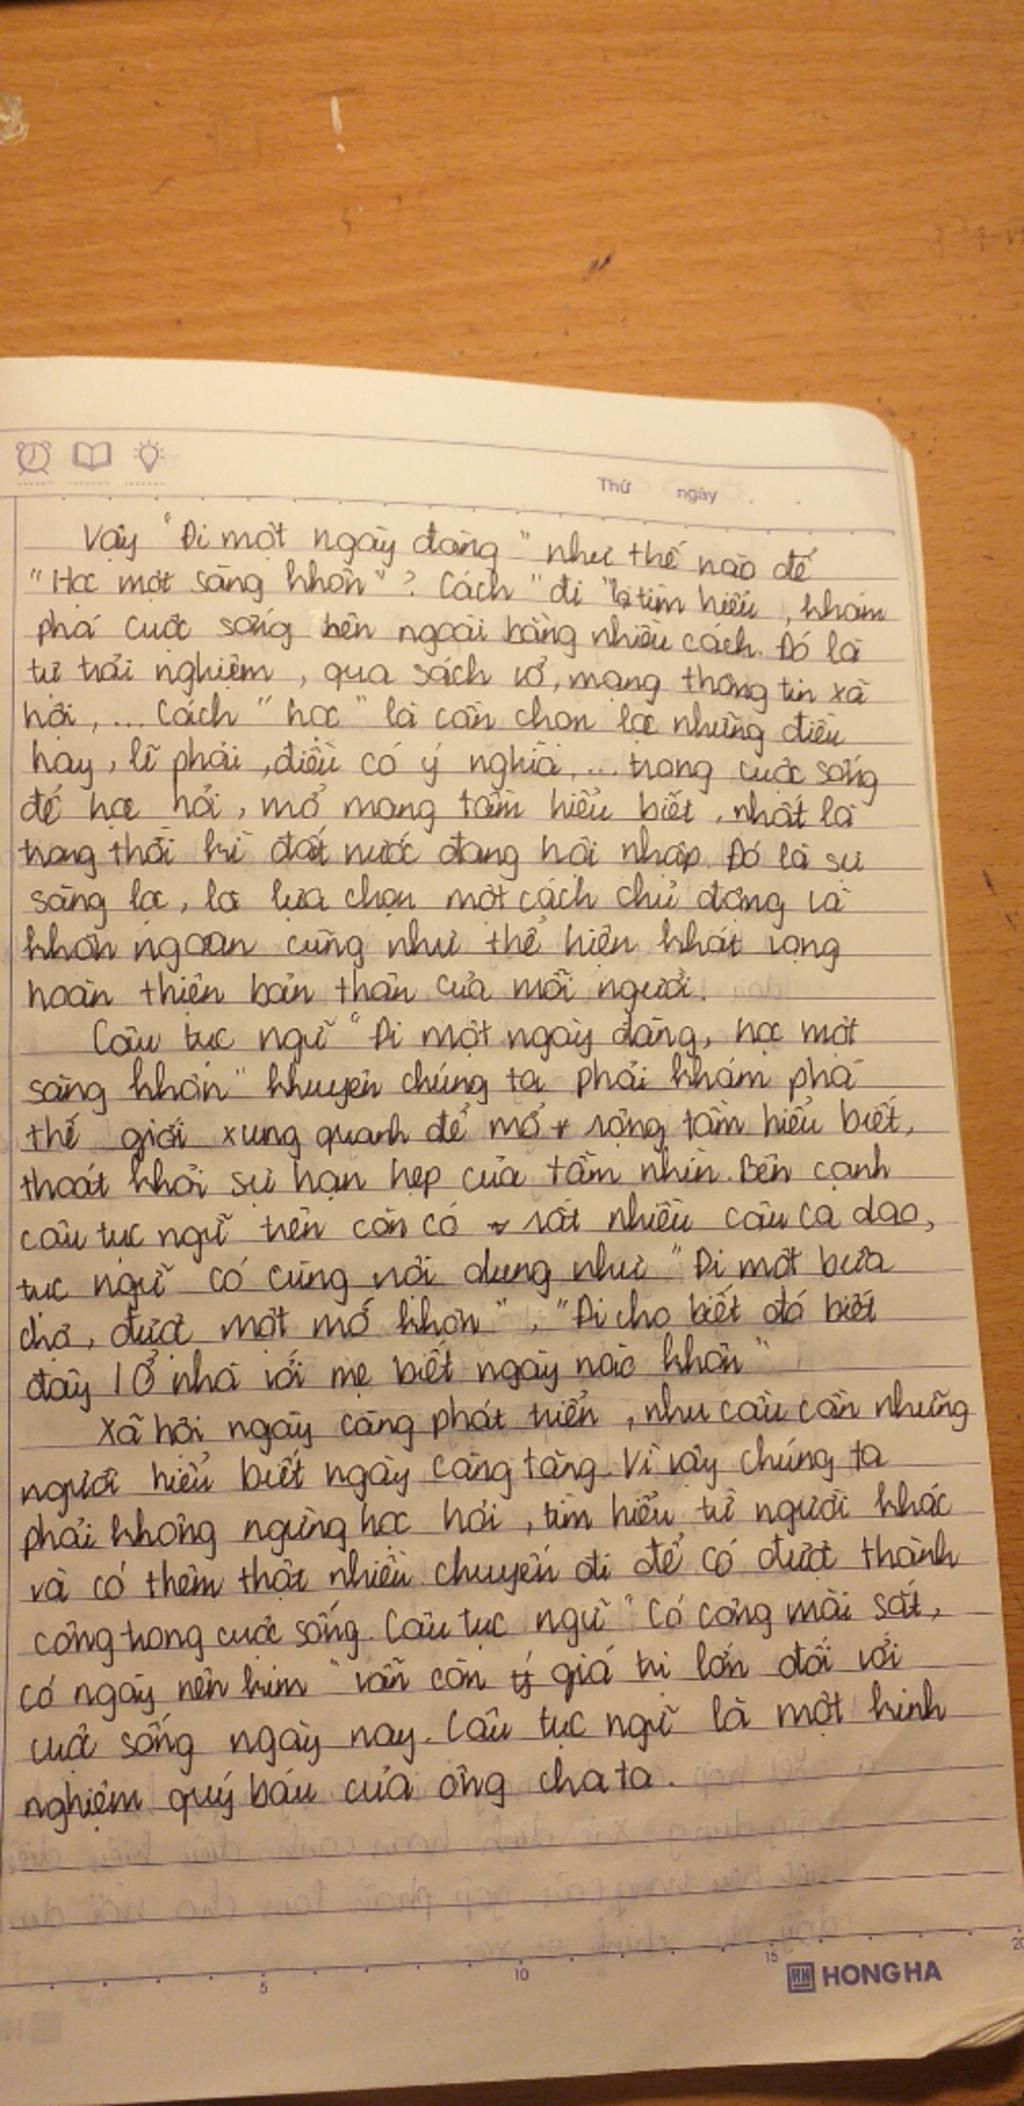 Thứ ngày
Vậy "Đi một ngày đàng" như thế nào để
"Học một sàng khôn"? Cách "đi" là tìm hiểu, khám
phá cuộc sống bên ngoài bằng nhiều cách. Đó là
tự trải nghiệm, qua sách vở, mạng thông tin xã
hội,... Cách "học" là cần chọn lọc những điều
hay, lẽ phải, điều có ý nghĩa,... trong cuộc sống
để học hỏi, mở mang tầm hiểu biết, nhất là
trong thời kì đất nước đang hội nhập. Đó là sự
sàng lọc, lọc lựa chọn một cách chủ động và
khôn ngoan cũng như thể hiện khát vọng
hoàn thiện bản thân của mỗi người.
Câu tục ngữ "Đi một ngày đàng, học một
sàng khôn" khuyên chúng ta phải khám phá
thế giới xung quanh để mở rộng tầm hiểu biết,
thoát khỏi sự hạn hẹp của tầm nhìn. Bên cạnh
câu tục ngữ trên còn có rất nhiều câu ca dao,
tục ngữ có cùng nội dung như "Đi một bữa
chợ, được một mớ khôn", "Đi cho biết đó biết
đây / Ở nhà với mẹ biết ngày nào khôn"
Xã hội ngày càng phát triển, nhu cầu cần những
người hiểu biết ngày càng tăng. Vì vậy chúng ta
phải không ngừng học hỏi, tìm hiểu từ người khác
và có thêm thật nhiều chuyến đi để có được thành
công trong cuộc sống. Câu tục ngữ "Có công mài sắt,
có ngày nên kim" vẫn còn giá trị lớn đối với
cuộc sống ngày nay. Câu tục ngữ là một kinh
nghiệm quý báu của ông cha ta.
5 10 15 20
HONG HA